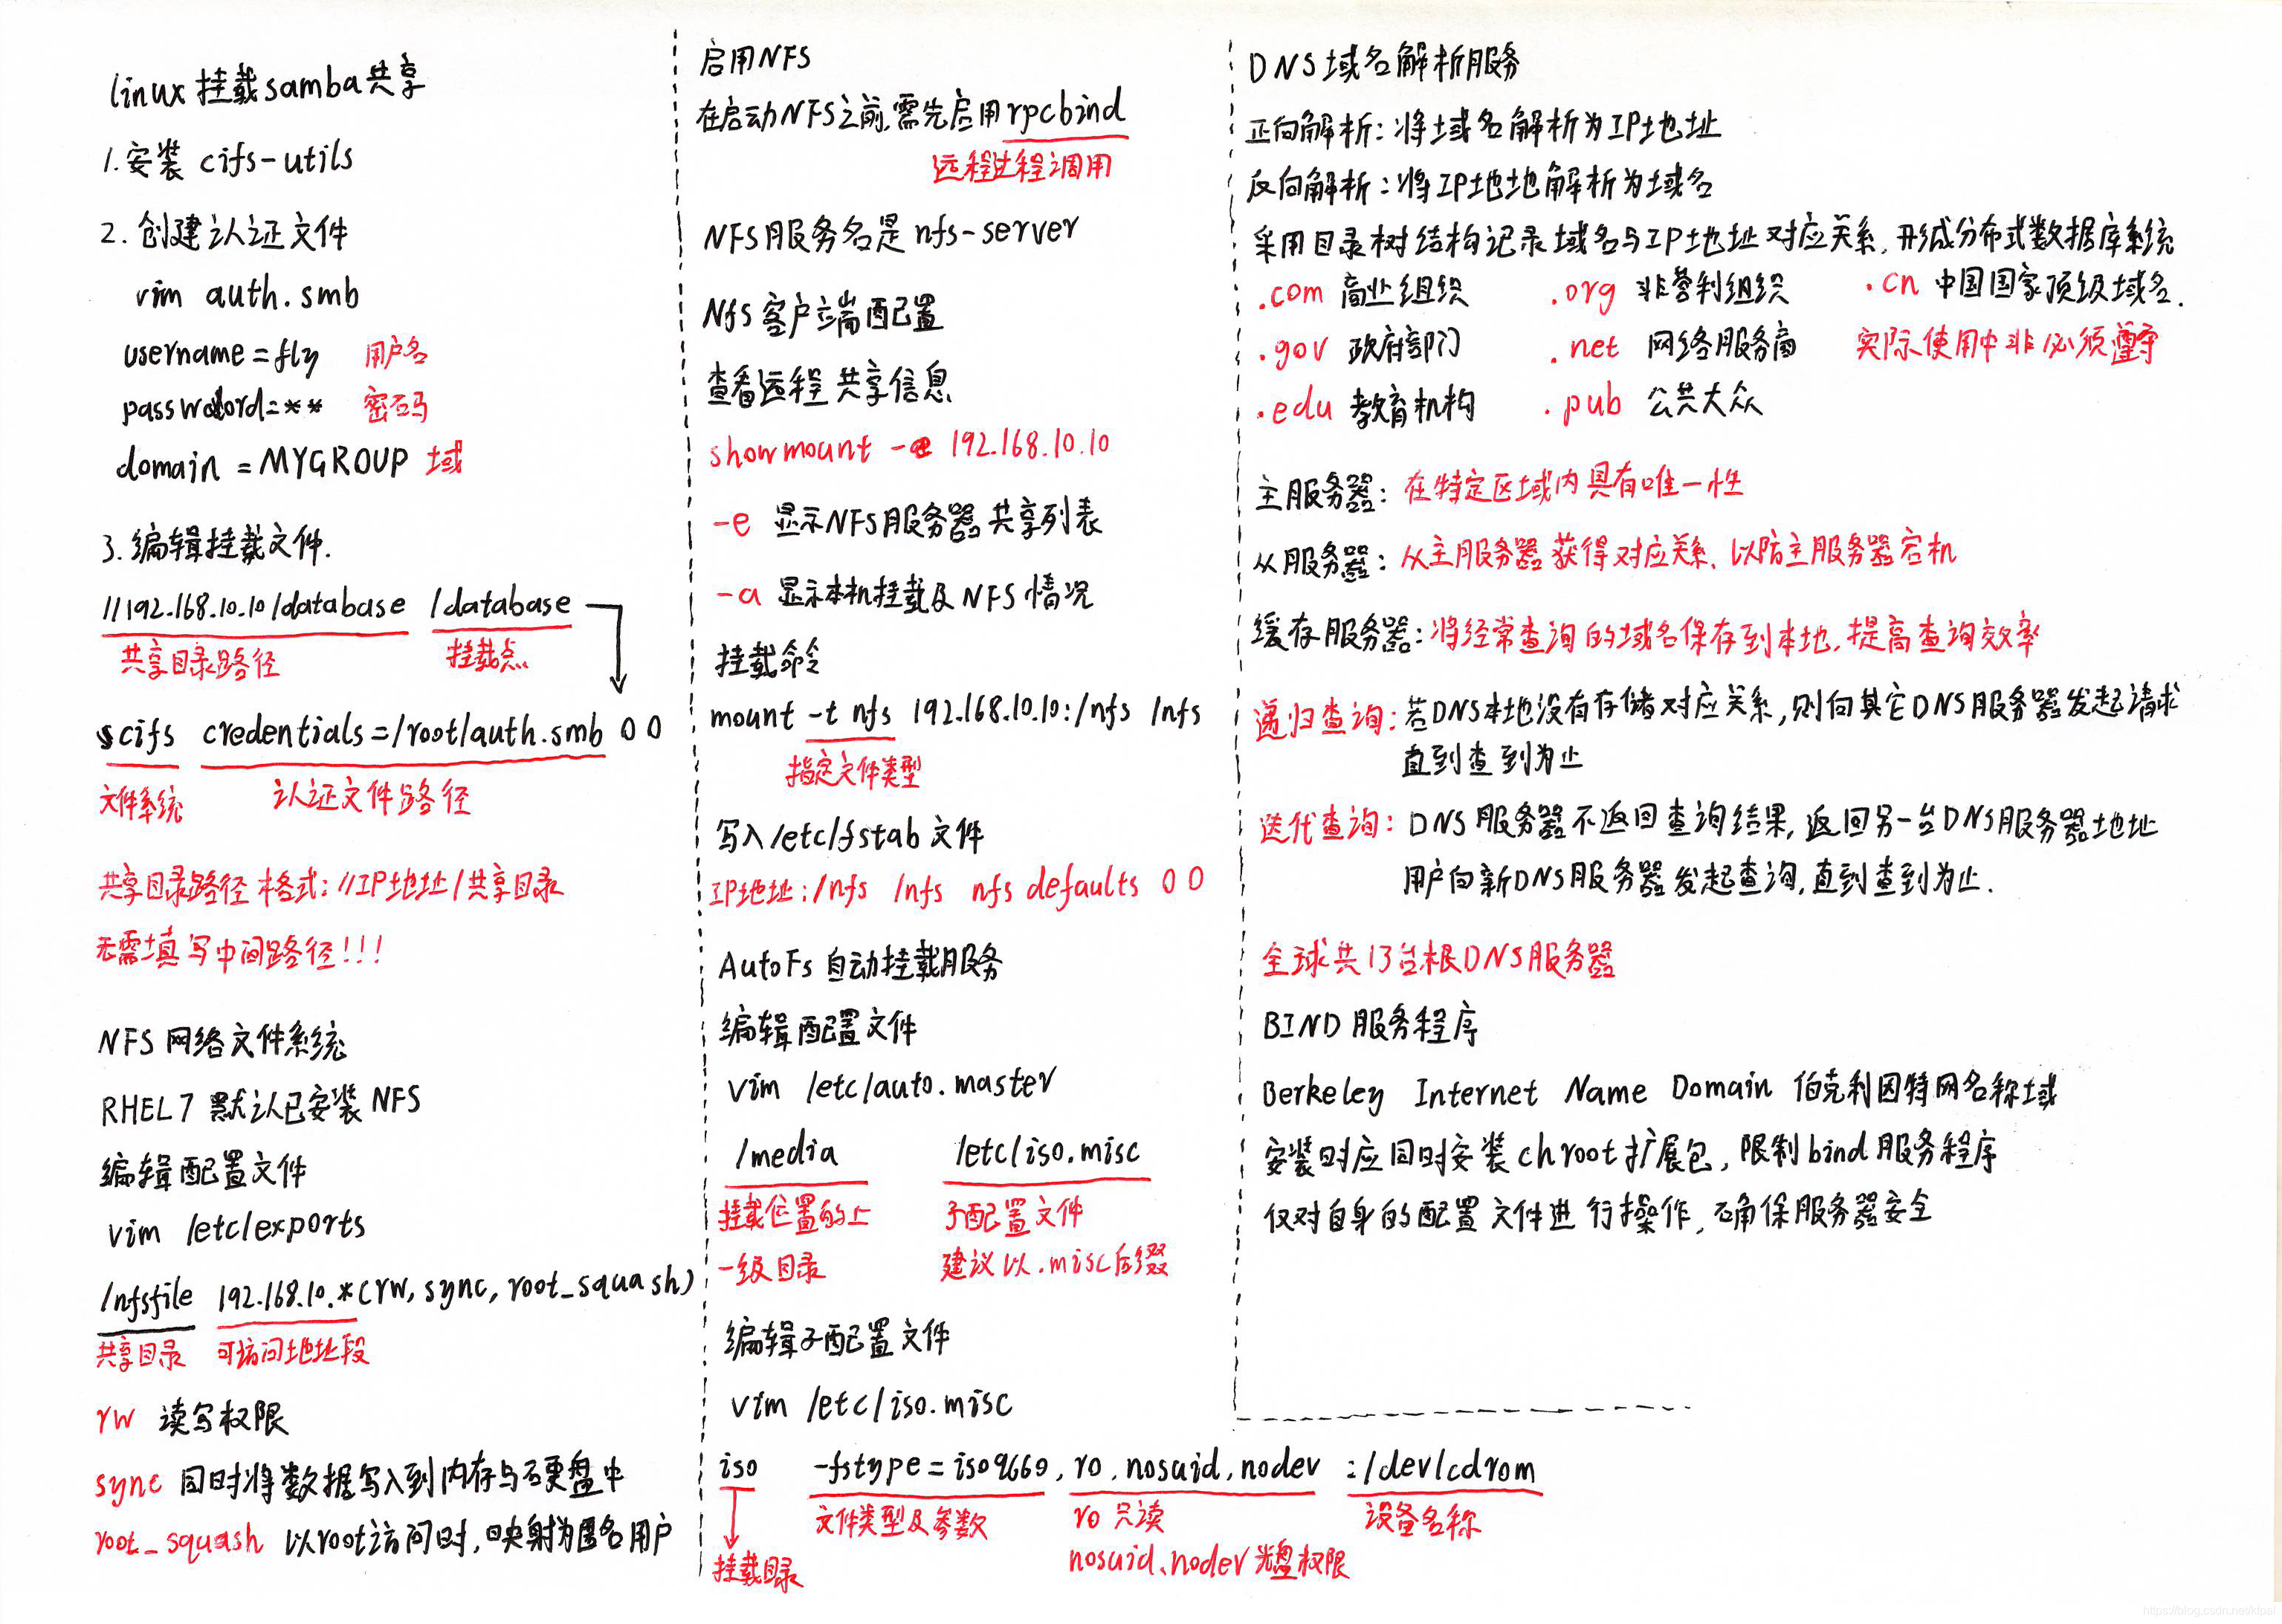 linux 挂载samba共享
1.安装 cifs-utils
2.创建认证文件
vim auth.smb
username=fly 用户名
password=** 密码
domain=MYGROUP 域
3.编辑挂载文件.
//192.168.10.10/database /database
共享目录路径 挂载点
cifs credentials=/root/auth.smb 0 0
文件系统 认证文件路径
共享目录路径格式://IP地址/共享目录
无需填写中间路径!!!
NFS 网络文件系统
RHEL7 默认已安装NFS
编辑配置文件
vim /etc/exports
/nfsfile 192.168.10.*(rw,sync,root_squash)
共享目录 可访问地址段
rw 读写权限
sync 同时将数据写入到内存与硬盘中
root_squash 以root访问时,映射为匿名用户
启用NFS
在启动NFS之前,需先启用rpcbind
远程过程调用
NFS服务名是nfs-server
Nfs客户端配置
查看远程共享信息
showmount -e 192.168.10.10
-e 显示NFS服务器共享列表
-a 显示本机挂载及NFS情况
挂载命令
mount -t nfs 192.168.10.10:/nfs /nfs
指定文件类型
写入/etc/fstab文件
IP地址:/nfs /nfs nfs defaults 0 0
AutoFs自动挂载服务
编辑配置文件
vim /etc/auto.master
/media /etc/iso.misc
挂载位置的上 子配置文件
一级目录 建议以.misc后缀
编辑子配置文件
vim /etc/iso.misc
iso -fstype=iso9660,ro,nosuid,nodev :/dev/cdrom
文件类型及参数 ro 只读 设备名称
挂载目录 nosuid、nodev光盘权限
DNS域名解析服务
正向解析:将域名解析为IP地址
反向解析:将IP地地解析为域名
采用目录树结构记录域名与IP地址对应关系,形成分布式数据库系统
.com 商业组织 .org 非营利组织 .cn 中国国家顶级域名.
.gov 政府部门 .net 网络服务商 实际使用中非必须遵守
.edu 教育机构 .pub 公共大众
主服务器:在特定区域内具有唯一性
从服务器:从主服务器获得对应关系,以防主服务器宕机
缓存服务器:将经常查询的域名保存到本地,提高查询效率
递归查询:若DNS本地没有存储对应关系,则向其它DNS服务器发起请求
直到查到为止
迭代查询:DNS服务器不返回查询结果,返回另一台DNS服务器地址
用户向新DNS服务器发起查询,直到查到为止.
全球共13台根DNS服务器
BIND服务程序
Berkeley Internet Name Domain 伯克利因特网名称域
安装时应同时安装chroot扩展包,限制bind服务程序
仅对自身的配置文件进行操作,确保服务器安全
https://blog.csdn.net/kfpsf